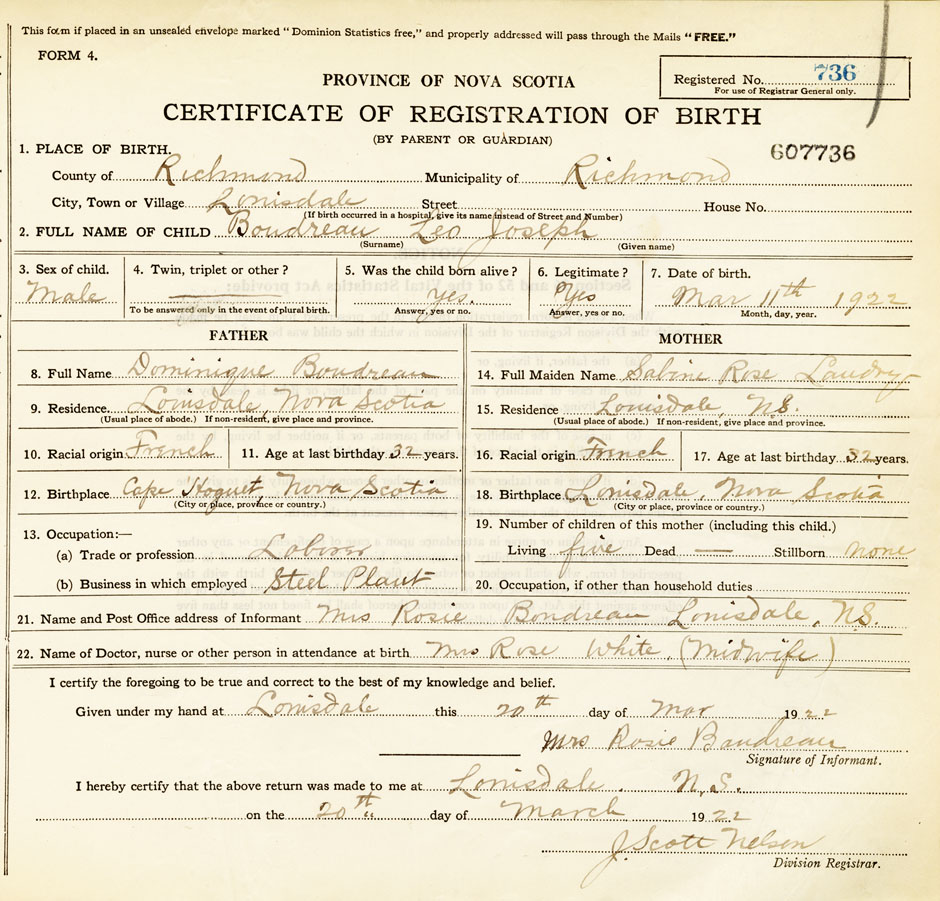 This form if placed in an unsealed envelope marked "Dominion Statistics free," and properly addressed will pass through the Mails "FREE."
FORM 4.
Registered No. 736
For use of Registrar General only.
PROVINCE OF NOVA SCOTIA
CERTIFICATE OF REGISTRATION OF BIRTH
(BY PARENT OR GUARDIAN)
607736
1. PLACE OF BIRTH.
County of Richmond Municipality of Richmond
City, Town or Village Louisdale Street House No.
(If birth occurred in a hospital, give its name instead of Street and Number)
2. FULL NAME OF CHILD Boudreau Leo Joseph
(Surname) (Given name)
3. Sex of child. 4. Twin, triplet or other? 5. Was the child born alive? 6. Legitimate? 7. Date of birth.
Male Yes. Yes Mar 11th 1922
To be answered only in the event of plural birth. Answer, yes or no. Answer, yes or no. Month, day, year.
FATHER MOTHER
8. Full Name Dominique Boudreau 14. Full Maiden Name Sabine Rose Landry
9. Residence. Louisdale, Nova Scotia 15. Residence Louisdale, N.S.
(Usual place of abode.) If non-resident, give place and province. (Usual place of abode.) If non-resident, give place and province.
10. Racial origin French 11. Age at last birthday 32 years. 16. Racial origin French 17. Age at last birthday 32 years.
12. Birthplace Cape Hoguet, Nova Scotia 18. Birthplace Louisdale, Nova Scotia
(City or place, province or country.) (City or place, province or country.)
13. Occupation:— 19. Number of children of this mother (including this child.)
(a) Trade or profession Laborer Living five Dead — Stillborn none
(b) Business in which employed Steel Plant 20. Occupation, if other than household duties
21. Name and Post Office address of Informant Mrs Rosie Boudreau Louisdale, N.S.
22. Name of Doctor, nurse or other person in attendance at birth Mrs Rose White, (Midwife)
I certify the foregoing to be true and correct to the best of my knowledge and belief.
Given under my hand at Louisdale this 20th day of Mar 1922
Mrs Rosie Boudreau
Signature of Informant.
I hereby certify that the above return was made to me at Louisdale. N.S.
on the 20th day of March 1922
J. Scott Nelson
Division Registrar.